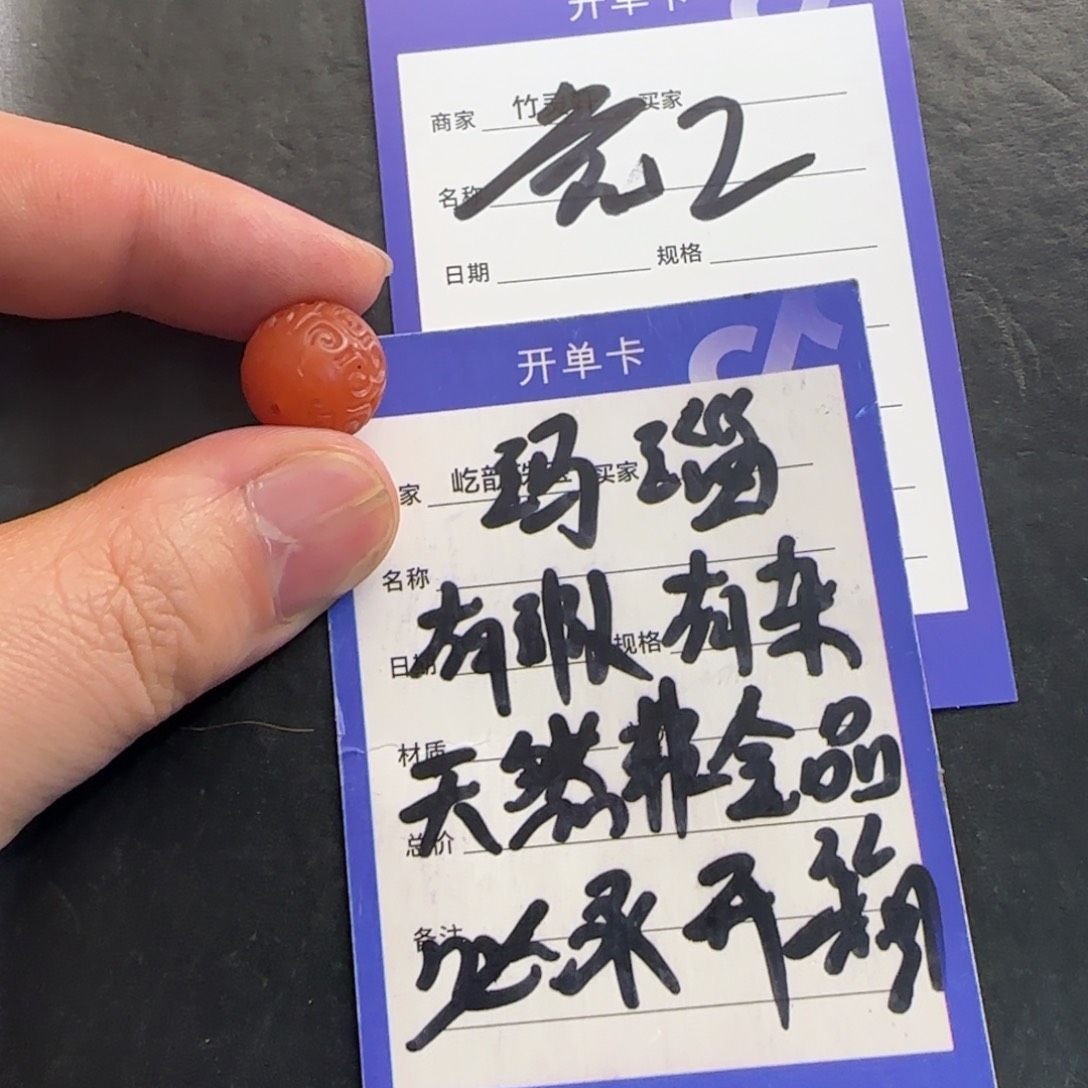 开单卡
商家 竹 买家
名称
老12
日期 规格
开单卡
玛瑙
家 屹韵 买家
名称
有瑕 有杂
日期 规格
材质
天然非全品
总价
备注
必录开箱